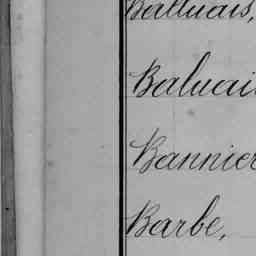 Balluais,
Baluai
Bannier
Barbe,